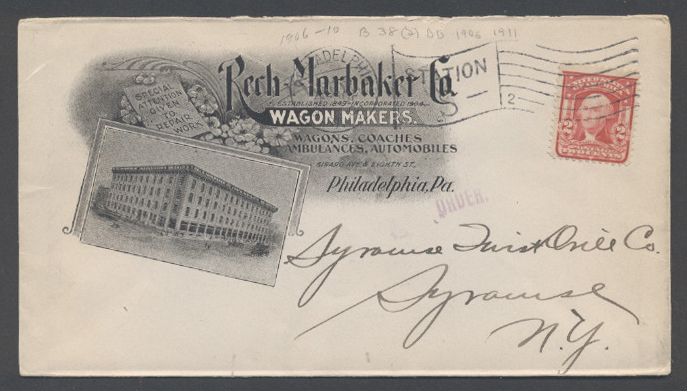 1906-10 B 38 (2) DD 1906 1911
SPECIAL
ATTENTION
GIVEN
TO
REPAIR
WORK
Rech-Marbaker Co
ESTABLISHED 1849-INCORPORATED 1904.
WAGON MAKERS.
WAGONS, COACHES
AMBULANCES, AUTOMOBILES
GIRARD AVE & EIGHTH ST.
Philadelphia, Pa.
2
2 2
ORDER.
Syracuse Twist Drill Co.
Syracuse
N.Y.